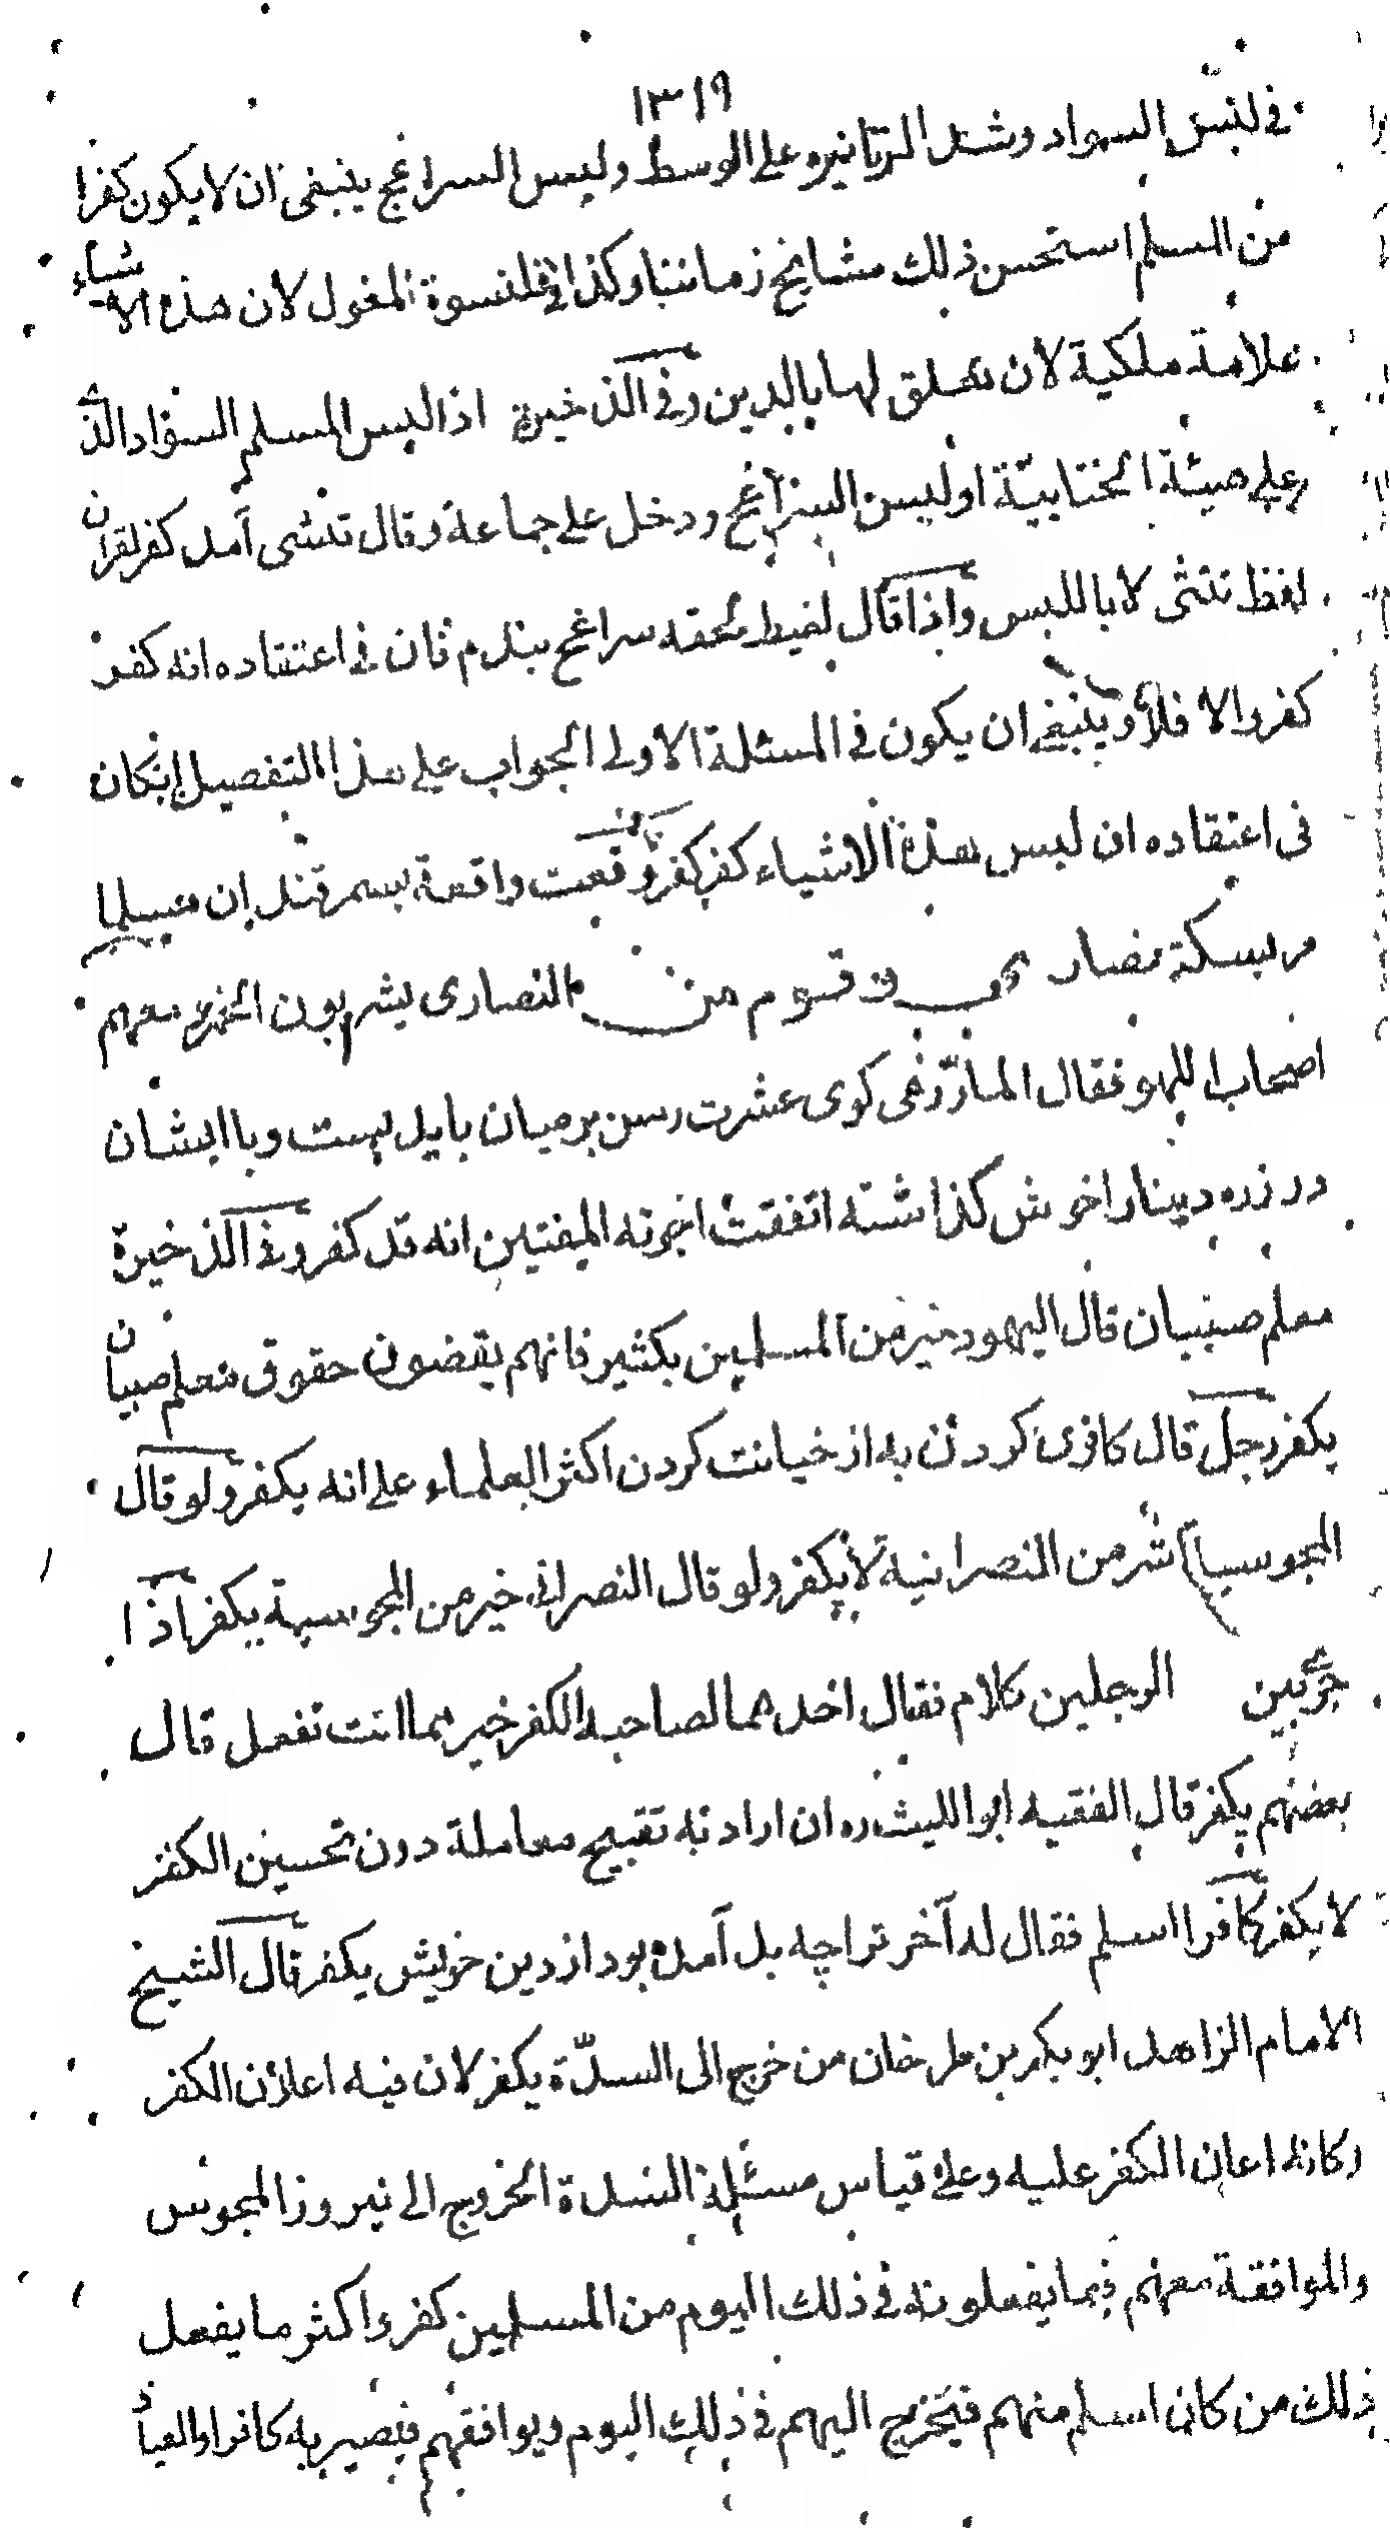 ١٣١٩
في لبس السواد وشد الزنانيره على الوسط ولبس السراغج ينبغى ان لا يكون كفرا
من المسلم استحسن ذلك مشايخ زماننا وكذا في قلنسوة المغول لان هذه الاشياء
علامة ملكية لان تعلق لها بالدين وفي الذخيرة اذا لبس المسلم السواد
على هيئة اولبس السراغج ودخل على جماعة وقال تنشى آمد كفر لقران
لفظ تنشى لا باللبس واذا قال لخيط سراغج فان في اعتقاده انه كفر
كفر والا فلا وينبغي ان يكون في المسئلة الاولى الجواب على هذا التفصيل ان كان
في اعتقاده ان لبس هذه الاشياء كفر كفر وقعت واقعة بسمرقند ان مسلما
مر بسكة نصارى قوم من النصارى يشربون الخمر معهم
اصحاب اللهو فقال المار در كوى عشرت رسن بر ميان بايد بست وبا ايشان
در زده دينا را خوش كذاشته اتفقت اجوبة المفتين انه قد كفر وفي الذخيرة
معلم صبيان قال اليهود خير من المسلمين بكثير فانهم يقضون حقوق معلم صبيان
يكفر رجل قال كافرى كردن به از خيانت كردن اكثر العلماء على انه يكفر ولو قال
المجوسيا شر من النصرانية لا يكفر ولو قال النصرانى خير من المجوسية يكفر اذا
جرى بين الرجلين كلام فقال احدهما لصاحبه الكفر خير مما انت تفعل قال
بعضهم يكفر قال الفقيه ابو الليث ره ان اراد به تقبيح معاملة دون تحسين الكفر
لا يكفر كافرا اسلم فقال له آخر تراچه بد آمده بود از دين خويش يكفر قال الشيخ
الامام الزاهد ابو بكر بن طرخان من خرج الى السدّة يكفر لان فيه اعلان الكفر
وكانه اعان الكفر عليه وعلى قياس مسئلة السدة الخروج الى نيروز المجوس
والموافقة معهم فيما يفعلونه في ذلك اليوم من المسلمين كفر واكثر ما يفعل
ذلك من كان اسلم منهم فيخرج اليهم في ذلك اليوم ويوافقهم فيصير به كافرا والعياذ